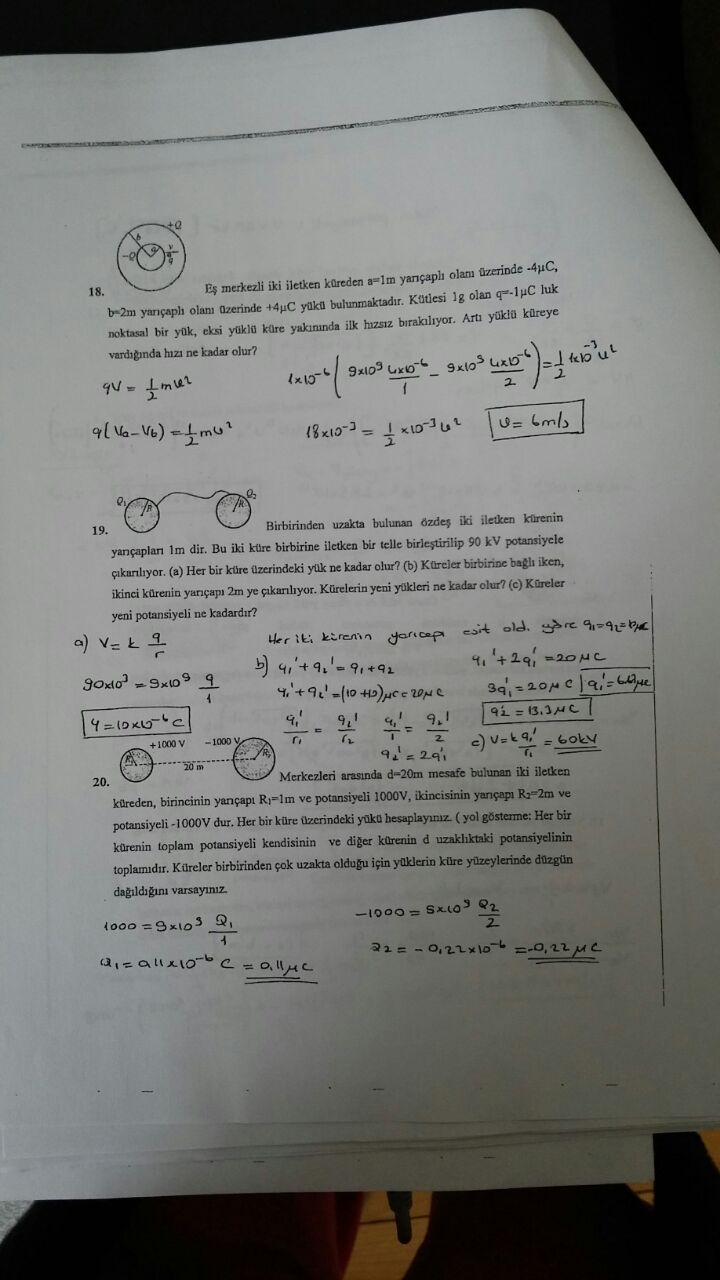 +Q
b
a
-Q
v
q
18. Eş merkezli iki iletken küreden a=1m yarıçaplı olanı üzerinde -4μC,
b=2m yarıçaplı olanı üzerinde +4μC yükü bulunmaktadır. Kütlesi 1g olan q=-1μC luk
noktasal bir yük, eksi yüklü küre yakınında ilk hızsız bırakılıyor. Artı yüklü küreye
vardığında hızı ne kadar olur?
qV = 1/2 mv²
1x10⁻⁶ ( 9x10⁹ 4x10⁻⁶/1 - 9x10⁹ 4x10⁻⁶/2 ) = 1/2 1x10⁻³ v²
q(Va-Vb) = 1/2 mv²
18x10⁻³ = 1/2 x10⁻³ v²
v = 6m/s
Q₁ R R Q₂
19. Birbirinden uzakta bulunan özdeş iki iletken kürenin
yarıçapları 1m dir. Bu iki küre birbirine iletken bir telle birleştirilip 90 kV potansiyele
çıkarılıyor. (a) Her bir küre üzerindeki yük ne kadar olur? (b) Küreler birbirine bağlı iken,
ikinci kürenin yarıçapı 2m ye çıkarılıyor. Kürelerin yeni yükleri ne kadar olur? (c) Küreler
yeni potansiyeli ne kadardır?
a) V = k q/r
Her iki kürenin yarıçapı eşit old. göre q₁=q₂=10μC
b) q₁'+q₂' = q₁+q₂
q₁'+2q₁' = 20μC
90x10³ = 9x10⁹ q/1
q₁'+q₂' = (10+10)μC = 20μC
3q₁' = 20μC
q₁' = 6.6μC
q = 10x10⁻⁶ C
q₁'/r₁ = q₂'/r₂
q₁'/1 = q₂'/2
q₂' = 13.3μC
q₂' = 2q₁'
c) V = k q₁'/r₁ = 60kV
+1000 V -1000 V
R₁ R₂
20 m
20. Merkezleri arasında d=20m mesafe bulunan iki iletken
küreden, birincinin yarıçapı R₁=1m ve potansiyeli 1000V, ikincisinin yarıçapı R₂=2m ve
potansiyeli -1000V dur. Her bir küre üzerindeki yükü hesaplayınız. ( yol gösterme: Her bir
kürenin toplam potansiyeli kendisinin ve diğer kürenin d uzaklıktaki potansiyelinin
toplamıdır. Küreler birbirinden çok uzakta olduğu için yüklerin küre yüzeylerinde düzgün
dağıldığını varsayınız.
1000 = 9x10⁹ Q₁/1
-1000 = 9x10⁹ Q₂/2
Q₁ = 0,11x10⁻⁶ C = 0,11μC
Q₂ = -0,22x10⁻⁶ = -0,22μC